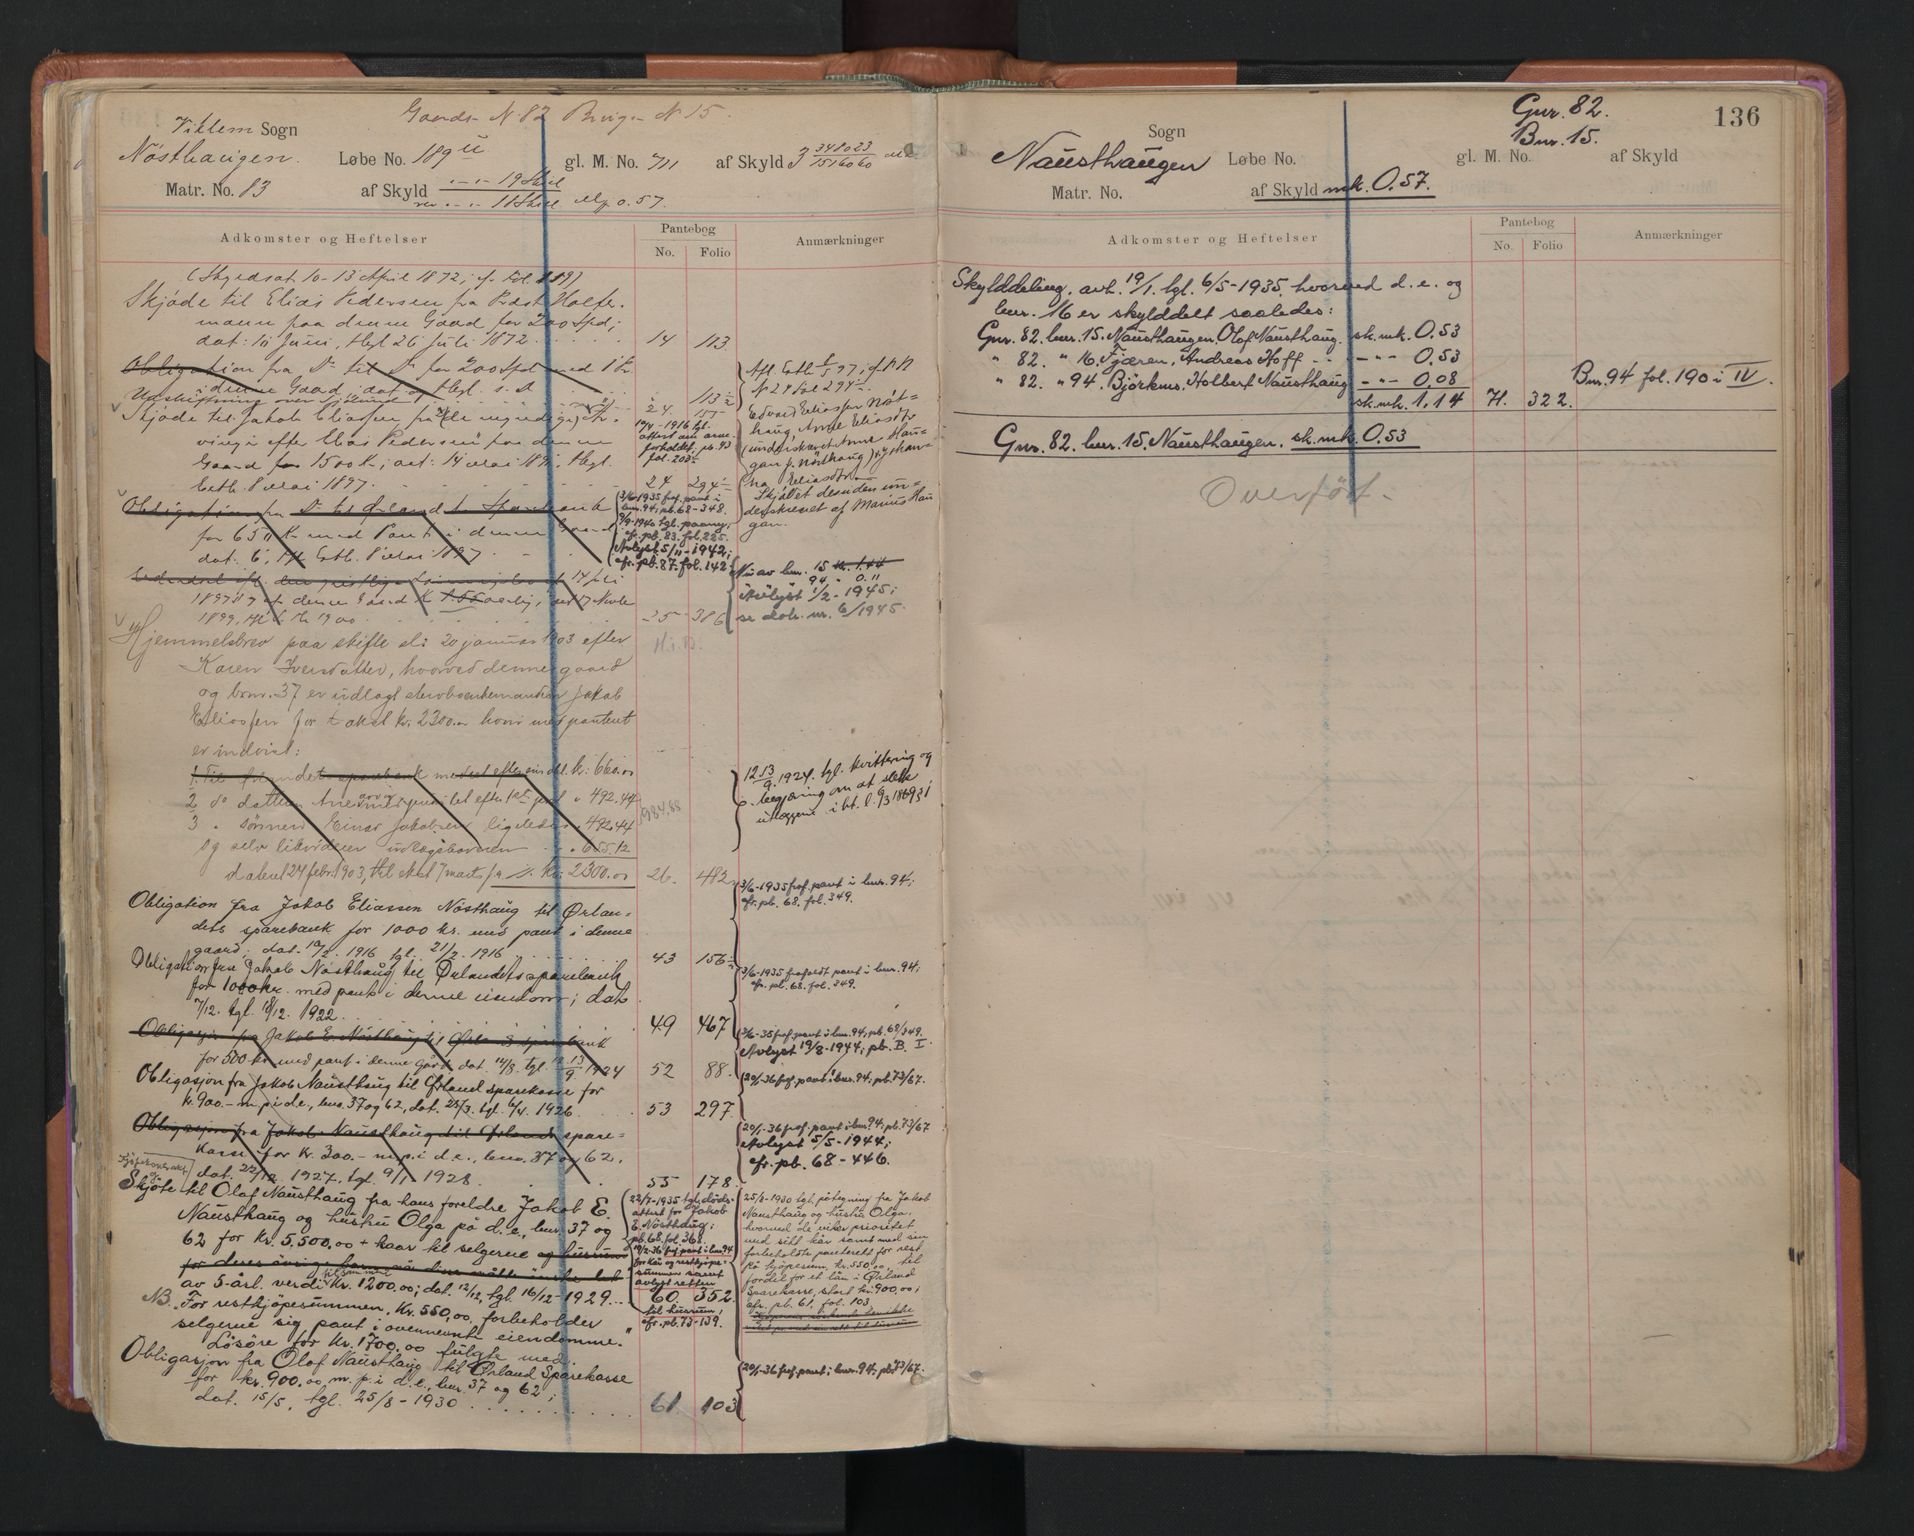 Gaards N. 82 Brugs N. 15.
Viklem Sogn
Nösthaugen. Løbe No. 189 u gl. M. No. 711 af Skyld 3
Matr. No. 83 af Skyld 19 Skil
11 Skil 0.57.
Adkomster og Heftelser
Pantebog
No. Folio
Anmærkninger
(Skyldsat 10-13 April 1872; cf. fol. 189)
Skjøde til Elias Pedersen fra Præst Holter-
mann paa denne Gaard for 200 Spd;
dat: 10 Juni, thgl 26 Juli 1872 14 113
Obligation fra D. til D. for 200 Spd med 1 Pr.
i denne Gaard, dat og thgl. s. d. 113
Skjøde til Jakob Eliassen fra
efter Elias Pedersen paa denne
Gaard for 1500 Kr; dat: 14 mai 189, thgl.
Extb. 8 mai 1897. 24 294
Obligation fra D. til Ørlandets Sparebank
for 650 Kr med Pant i denne Gaard
dat. 6, thgl Extb. 8 mai 1897
1897 denne Gaard
1899, 1900 25 386
Hjemmelsbrev paa skifte sl: 20 januar 1903 efter
Karen Iversdatter, hvorved denne gaard
og brnr. 37 er udlagt Jakob
Eliassen for takst kr. 2300.00 hvori med panteret
er indvist:
1. Til Ørlandets sparebank med efter kr. 660.00
2 do datteren " 492.44
3 " sønnen Einar Jakobsen ligeledes " 492.44
og selv " 655.12
dateret 24 febr. 1903, thl. 7 marts Kr. 2300.00 26. 482
984.88
12 13/9 1924. tgl. kvittering og
begjæring om at slette
Obligation fra Jakob Eliassen Nösthaug til Ørlan-
dets sparebank for 1000 kr. med pant i denne
gaard; dat. 19/2. 1916 tgl. 21/2. 1916 43 156
3/6-1935 fraf. pant i bnr. 94;
cfr. pb. 68. fol. 349.
Obligation fra Jakob Nösthaug til Ørlandets sparebank
for 1000 kr. med pant i denne eiendom; dat.
7/12. tgl. 18/12. 1922. 49 467
3/6-1935 frafaldt pant i bnr. 94;
cfr. pb. 68. fol. 349.
Obligasjon fra Jakob E. Nösthaug til sparebank
for 500 kr. med pant i denne gård dat. 12/8. tgl. 12 13/9 1924 52 88.
3/6-35 fraf. pant i bnr. 94; pb. 68/349.
Avlyst 19/8-1944; pb. B. I.
Obligasjon fra Jakob Nausthaug til Ørland sparekasse for
kr. 900.- m. p. i d. e., bnr. 37 og 62, dat. 25/3. tgl. 6/4. 1926. 53 297.
20/1-36 fraf. pant i bnr. 94; pb. 73/67.
Obligasjon fra Jakob Nausthaug til Ørland spare-
kasse for kr. 300.- m. p. i d. e., bnr. 37 og 62.
dat. 22/12. 1927. tgl. 9/1 1928. 55 178.
20/1-36 fraf. pant i bnr. 94; pb. 73/67
Avlyst 5/5-1944;
cfr. pb. 68-446.
Kjøpekontrakt og
Skjöte til Olaf Nausthaug fra hans foreldre Jakob E.
Nausthaug og hustru Olga på d. e., bnr. 37 og
62 for kr. 5.500,00 + kaar til selgerne og husrum
for deres övrige barn
av 5-årl. verdi tilsammen kr. 1200.00; dat. 12/12, tgl. 16/12-1929... 60. 352.
22/7-1935 tgl. döds-
attest for Jakob
E. Nösthaug;
pb. 68. fol. 368.
19/2-36 fraf. pant i bnr. 94
for kår og restkjøpe-
summen samt
avlyst retten
til husrum;
cfr. pb. 73-139.
25/8-1930 tgl. påtegning fra Jakob
Nausthaug og hustru Olga,
hvorved de viker prioritet
med sitt kår samt med sin
forbeholdte panterett for rest
på kjöpesum, kr. 550.00, til
fordel for et lån i Ørland
Sparekasse, stort kr. 900,00;
cfr. pb. 61, fol. 103
NB. "For restkjöpesummen, kr. 550,00, forbeholder
selgerne sig pant i ovennevnte eiendomme."
Lösöre for kr. 1700.00 fulgte med.
Obligasjon fra Olaf Nausthaug til Ørland Sparekasse
for kr. 900.00 m. p. i d. e., bnr. 37 og 62;
dat. 15/5, tgl. 25/8-1930 61. 103
20/1-36 fraf. pant i bnr. 94; pb. 73/67.
3/6-1935 fraf. pant i
bnr. 94; pb. 68-348.
9/9-1940 tgl. paany;
cfr. pb. 83. fol. 225.
Avlyst 5/11-1942;
cfr. pb. 87. fol. 142.
Avlyst 1/2-1945;
se dok. nr. 6/1945.
Gnr. 82. 136
Bnr. 15.
Sogn
Nausthaugen Løbe No. gl. M. No. af Skyld
Matr. No. af Skyld mk. 0.57.
Adkomster og Heftelser
Pantebog
No. Folio
Anmærkninger
Skylddeling, avh. 19/1. tgl. 6/5-1935, hvorved d. e. og
bnr. 16 er skylddelt saaledes:
Gnr. 82. bnr. 15. Nausthaugen, Olaf Nausthaug. sk. mk. 0.53
" 82. " 16. Fjæren, Andreas Hoff - - - " - 0.53
" 82. " 94. Björkmo, Holbert Nausthaug - " - 0.08
Bnr. 94 fol. 190 i IV.
sk. mk. 1.14 H. 322.
Gnr. 82. bnr. 15. Nausthaugen. sk. mk. 0.53
Overført -